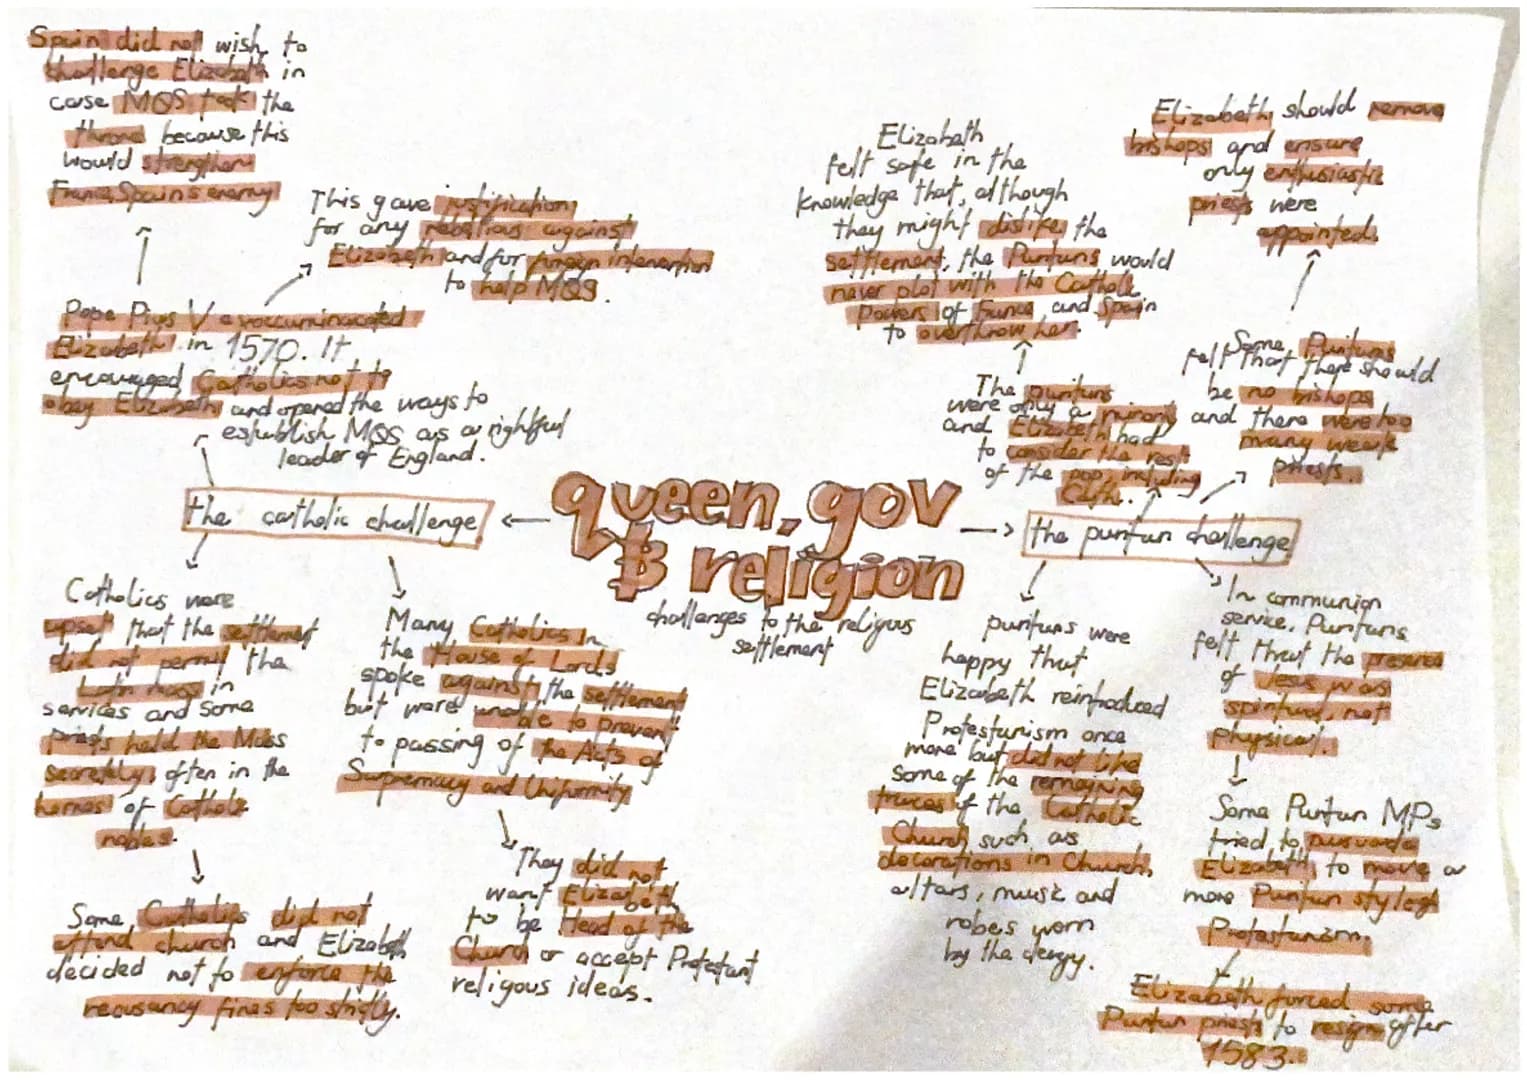 Spain did not wish to
challenge Elizabeth in
case MQS took the
throne because this
would strengthen
France, Spain's enemy
This gave justification
for any rebellions against
Elizabeth and for foreign intervention
to help MQS.
Pope Pius V
Elizabeth in 1570. It
encouraged Catholics not to
obey Elizabeth and opened the ways to
establish MQS as a rightful
leader of England.
the catholic challenge
Catholics were
upset that the settlement
did not permit the
Latin mass in
services and some
priests held the Mass
secretely, often in the
homes of Catholic
nobles.
Some Catholics did not
attend church and Elizabeth
decided not to enforce the
recusancy fines too strictly.
Many Catholics in
the House of Lords
spoke against the settlement
but were unable to prevent
to passing of the Acts of
Supremacy and Uniformity
They did not
want Elizabeth
to be Head of the
Church or accept Protestant
religous ideas.
queen, gov
& religion
challenges to the religius
settlement
the puritan challenge
Elizabeth
felt safe in the
knowledge that, although
they might dislike the
settlement, the Puritans would
never plot with the Catholic
Powers of France and Spain
to overthrow her.
The puritans
were only a minority
and Elizabeth had
to consider the rest
of the pop, including
Cath.
Elizabeth should remove
bishops and ensure
only enthusiastic
priests were
appointed.
Some Puritans
felt that there should
be no bishops
and there were too
many weak
priests.
puritans were
happy that
Elizabeth reintroduced
Protestanism once
more but did not like
some of the remaining
traces of the Catholic
Church such as
decorations in Church,
altars, music and
robes worn
by the clergy.
In communion
service, Puritans
felt that the presence
of Jesus was
spiritual, not
physical.
Some Puritan MPs
tried to
Elizabeth to move a
more Puritan style of
Protestanism.
Elizabeth forced some
Puritan priests to resign after
1583.